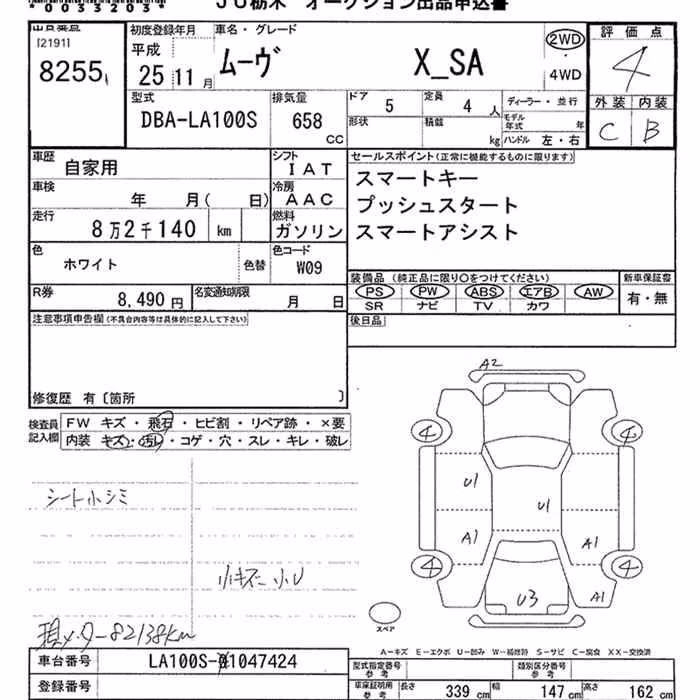 *0033203*
JU栃木 オークション出品申込書
出品番号
[2191]
8255
初度登録年月
平成
25 11 月
車名・グレード
ムーヴ X_SA
2WD
4WD
評価点
4
外装 内装
C B
型式
DBA-LA100S
排気量
658
CC
ドア 5
定員 4 人
形状
積載 kg
ディーラー・並行
モデル年式 年
ハンドル 左・右
車歴
自家用
シフト
IAT
車検
年 月( 日)
冷房
AAC
走行
8万2千140 km
燃料
ガソリン
セールスポイント(正常に機能するものに限ります)
スマートキー
プッシュスタート
スマートアシスト
色
ホワイト
色替
色コード
W09
装備品 (純正品に限り○をつけてください)
PS PW ABS エアB AW
SR ナビ TV カワ
新車保証書
有・無
R券
8,490 円
名変通知期限
月 日
後日品
注意事項申告欄(不具合内容等は具体的に記入して下さい)
修復歴 有〔箇所 〕
検査員記入欄
FW キズ・飛石・ヒビ割・リペア跡・×要
内装 キズ・汚レ・コゲ・穴・スレ・キレ・破レ
シート小シミ
小キズ 小U
現メーター82138km
A2
4 4
U1
U1
A1
A1
4 4
U3
A1
スペア
A-キズ E-エクボ U-凹み W-補修跡 S-サビ C-腐食 XX-交換済
車台番号
LA100S-1047424
登録番号
型式指定番号
参考
類別区分番号
参考
車庫証明用
参考
長さ 339 cm
幅 147 cm
高さ 162 cm